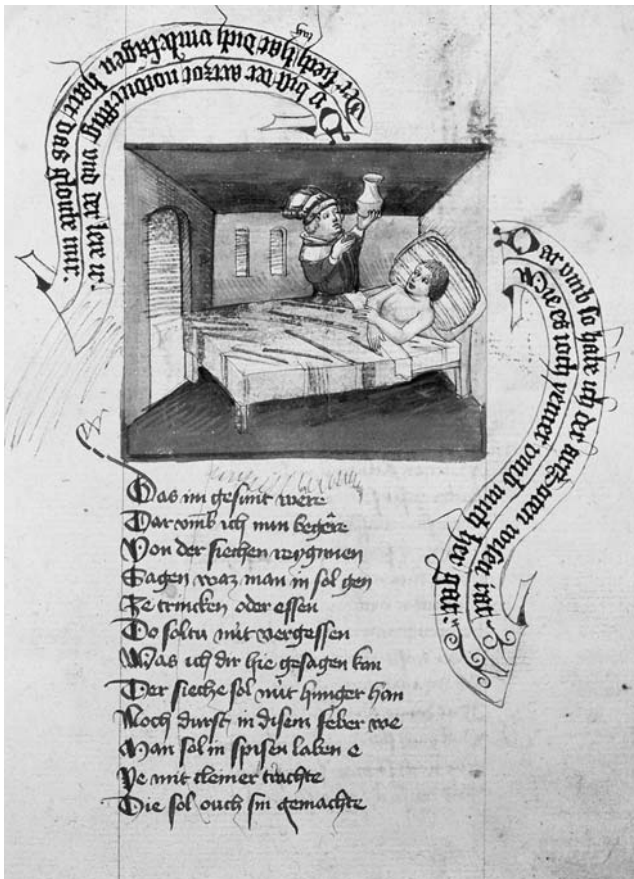 Der siech hat dich
Du bist der artzot notdurftig vnd der lere ir
hatt das gloube mir.
Dar vmb so habe ich der artzaten wisen rat
Wie es ioch yemer vmb mich her gat
Das im gesunt were
Dar vmb ich nun begere
Von der siechen
Sagen waz man in sol gen
Ze trincken oder essen
Do soltu nit vergessen
Was ich dir hie gesagen kan
Der sieche sol nit hunger han
Noch durst in disem feber we
Man sol in spisen laben e
Ye mit cleiner trachte
Die sol ouch sin gemachte